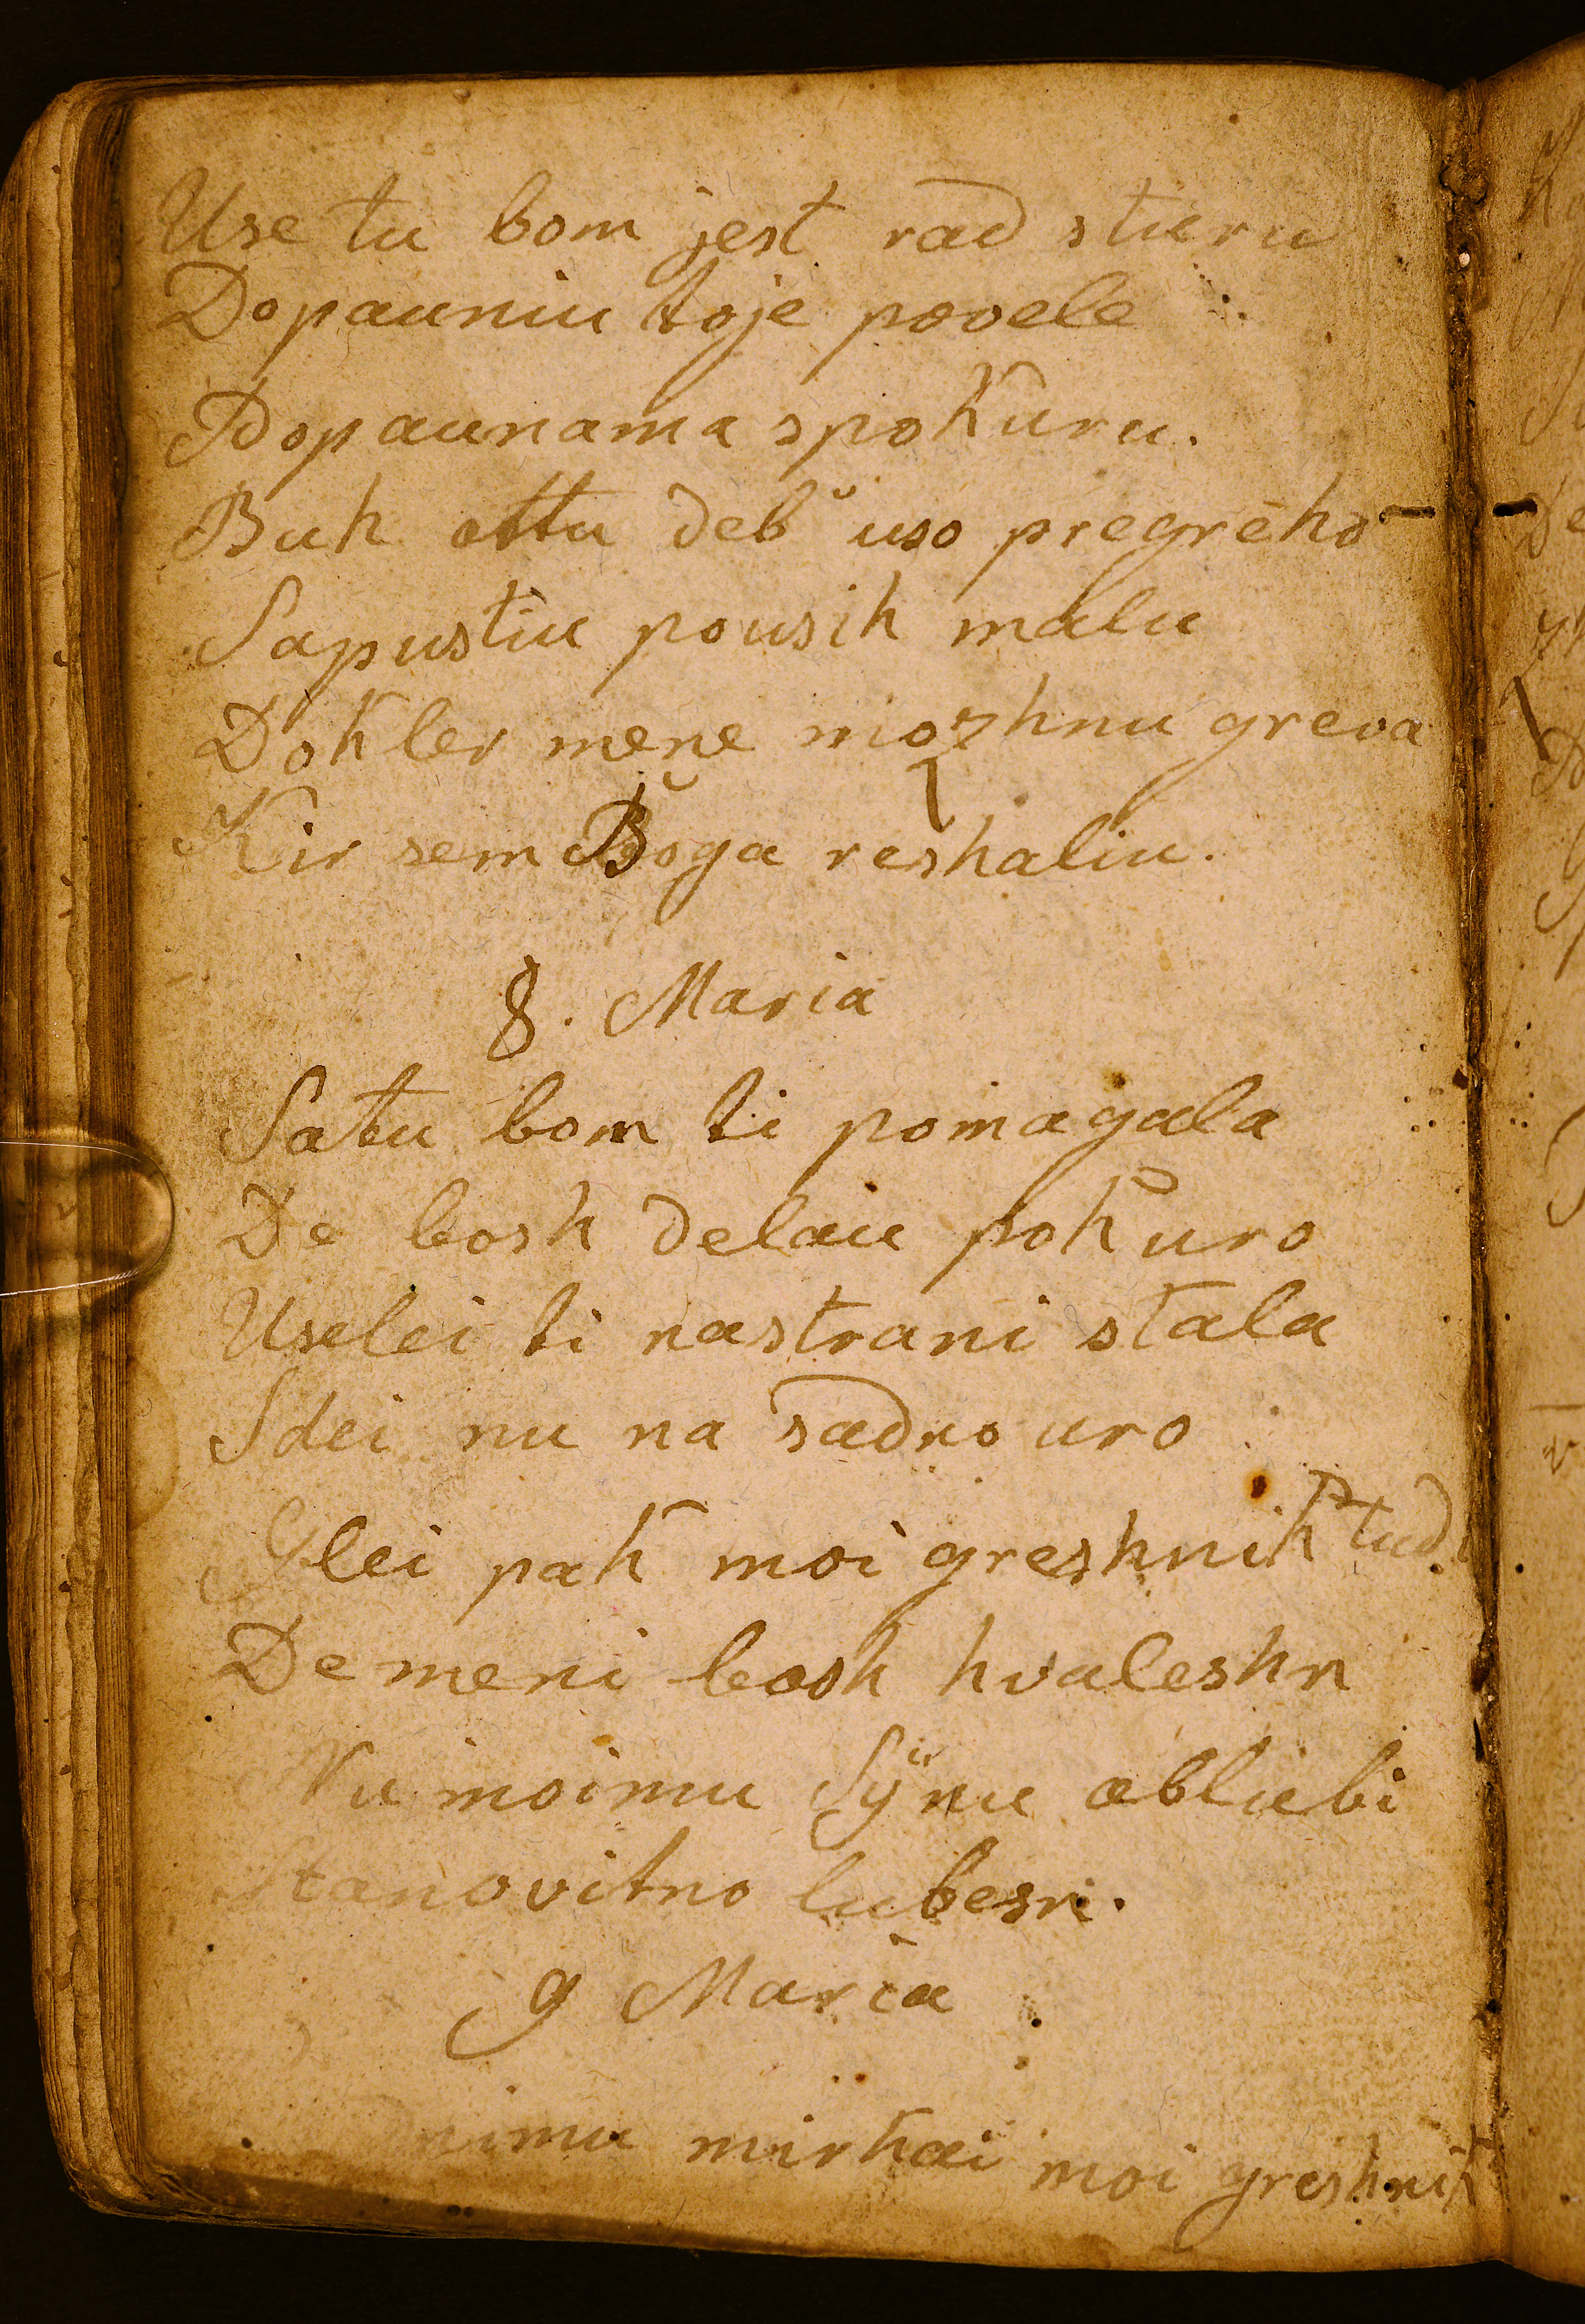 Use tu bom jest rad stieru
Dopauniu koje povele
Dopaunama spokuru.
Buh ottu deb uso pregreho
Sapustiu pousih malu
Dokler mene mozhnu greva
Kir sem Boga reshaliu.
8. Maria
Satu bom ti pomagala
De bosh delau pokuro
Uselei ti nastrani stala
Sdei nu na sadno uro
Glei pak moi greshnik tud
De meni bosh hvaleshn
Nu moimu Sÿnu obliubi
Stanovitno lubesn.
9 Maria
mirkai moi greshnik